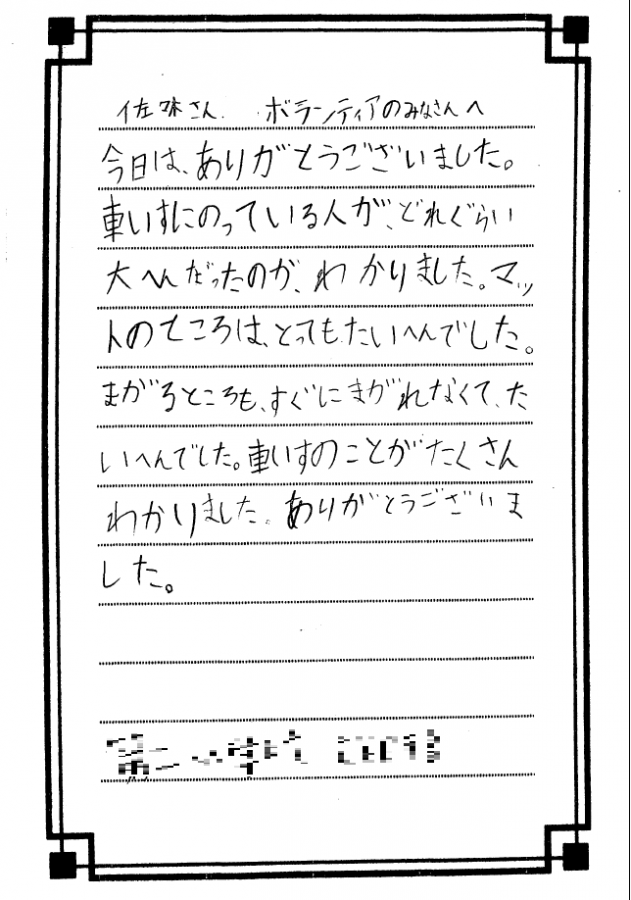 佐味さん　ボランティアのみなさんへ
今日は、ありがとうございました。
車いすにのっている人が、どれぐらい
大へんだったのが、わかりました。マッ
トのところは、とってもたいへんでした。
まがるところも、すぐにまがれなくて、た
いへんでした。車いすのことがたくさん
わかりました。ありがとうございま
した。